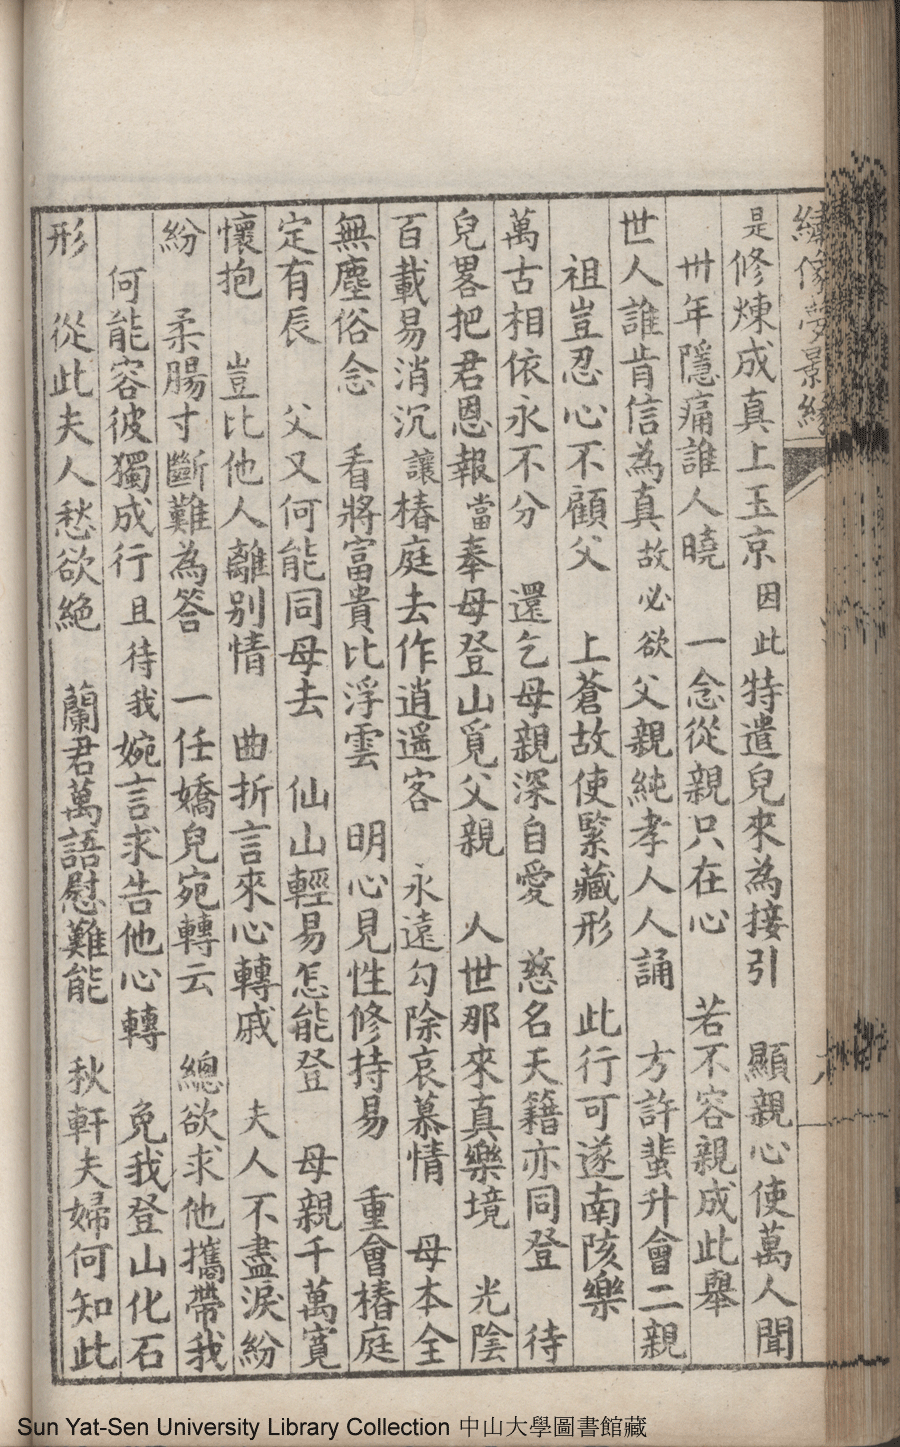 繡像夢影緣
是修煉成真上玉京　因此特遣兒來為接引　顯親心使萬人聞
卅年隱痛誰人曉　一念從親只在心　若不容親成此舉
世人誰肯信為真　故必欲父親純孝人人誦　方許蜚升會二親
祖豈忍心不顧父　上蒼故使緊藏形　此行可遂南陔樂
萬古相依永不分　還乞母親深自愛　慈名天籍亦同登　待
兒畧把君恩報　當奉母登山覓父親　人世那來真樂境　光陰
百載易消沉　讓椿庭去作逍遥客　永遠勾除哀慕情　母本全
無塵俗念　看將富貴比浮雲　明心見性修持易　重會椿庭
定有辰　父又何能同母去　仙山輕易怎能登　母親千萬寬
懷抱　豈比他人離别情　曲折言來心轉戚　夫人不盡淚紛
紛　柔腸寸斷難為答　一任嬌兒宛轉云　總欲求他攜帶我
何能容彼獨成行　且待我婉言求告他心轉　免我登山化石
形　從此夫人愁欲絕　蘭君萬語慰難能　秋軒夫婦何知此
Sun Yat-Sen University Library Collection 中山大學圖書館藏